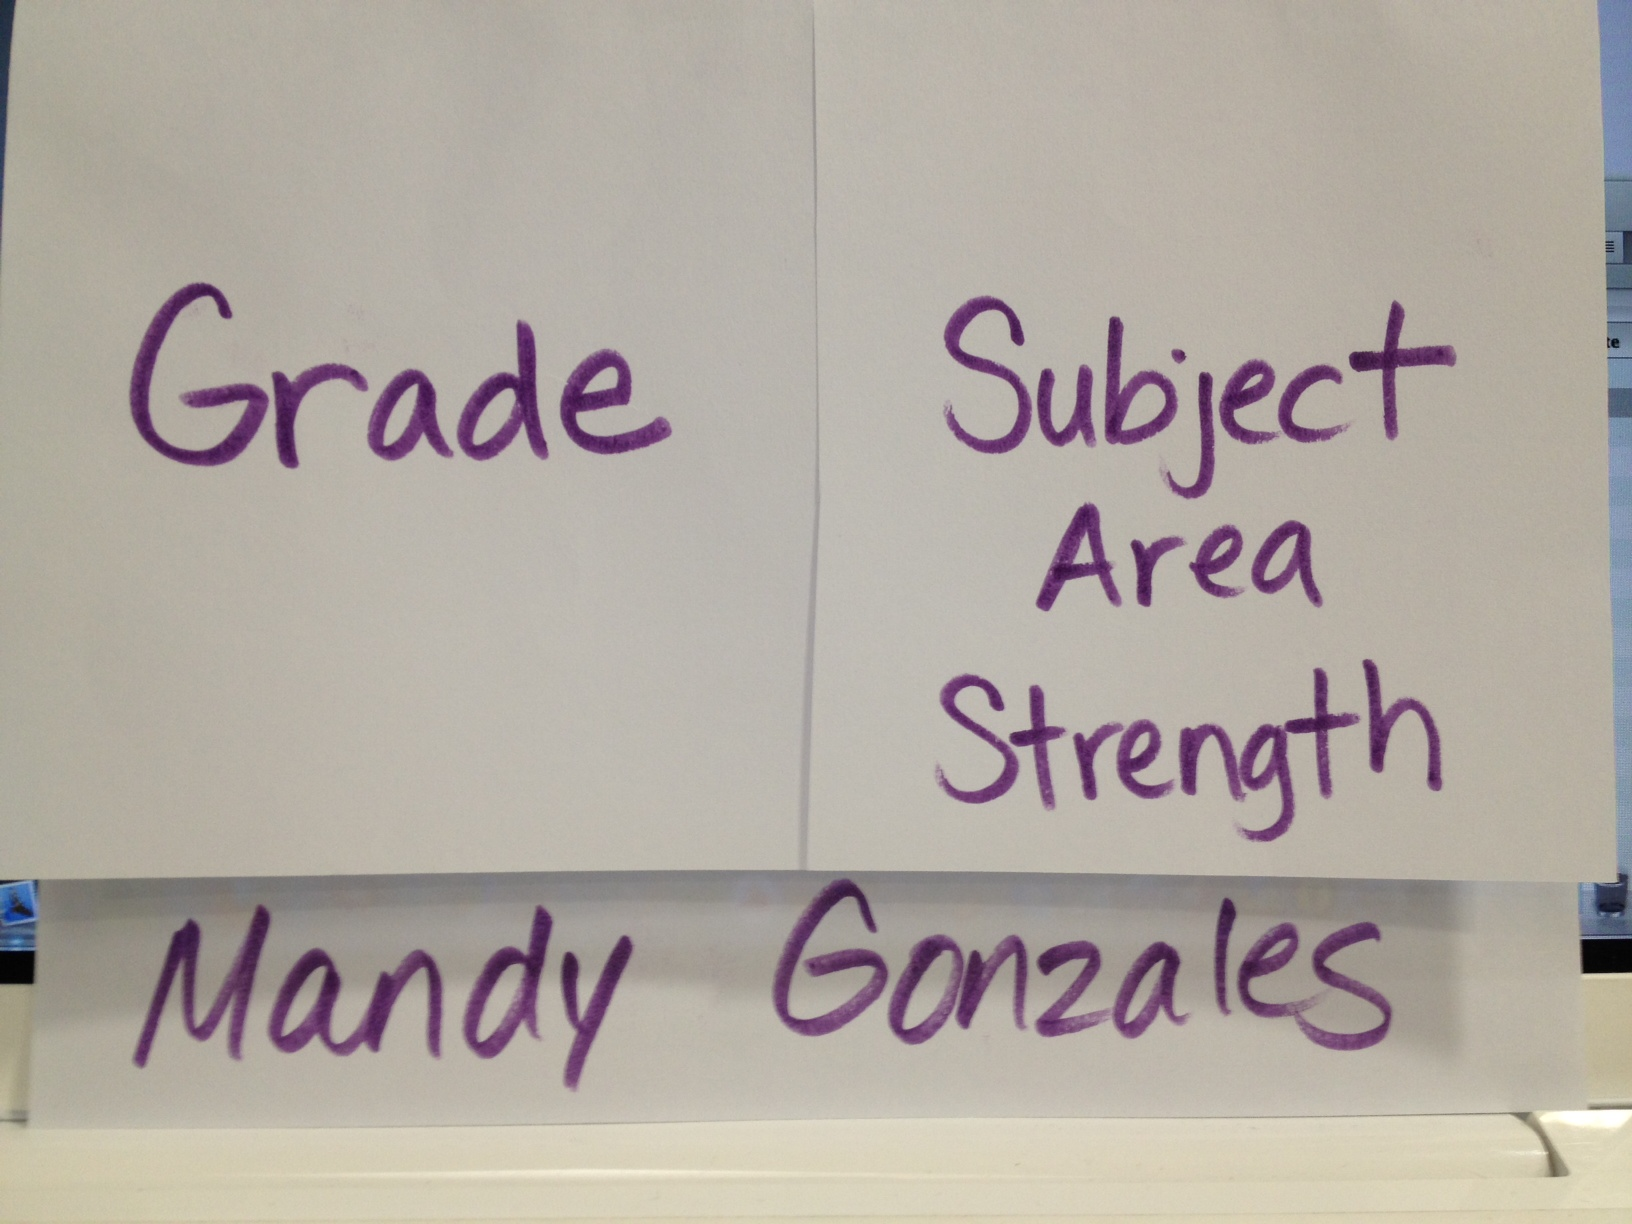 Grade
Subject
Area
Strength
Mandy Gonzales
te